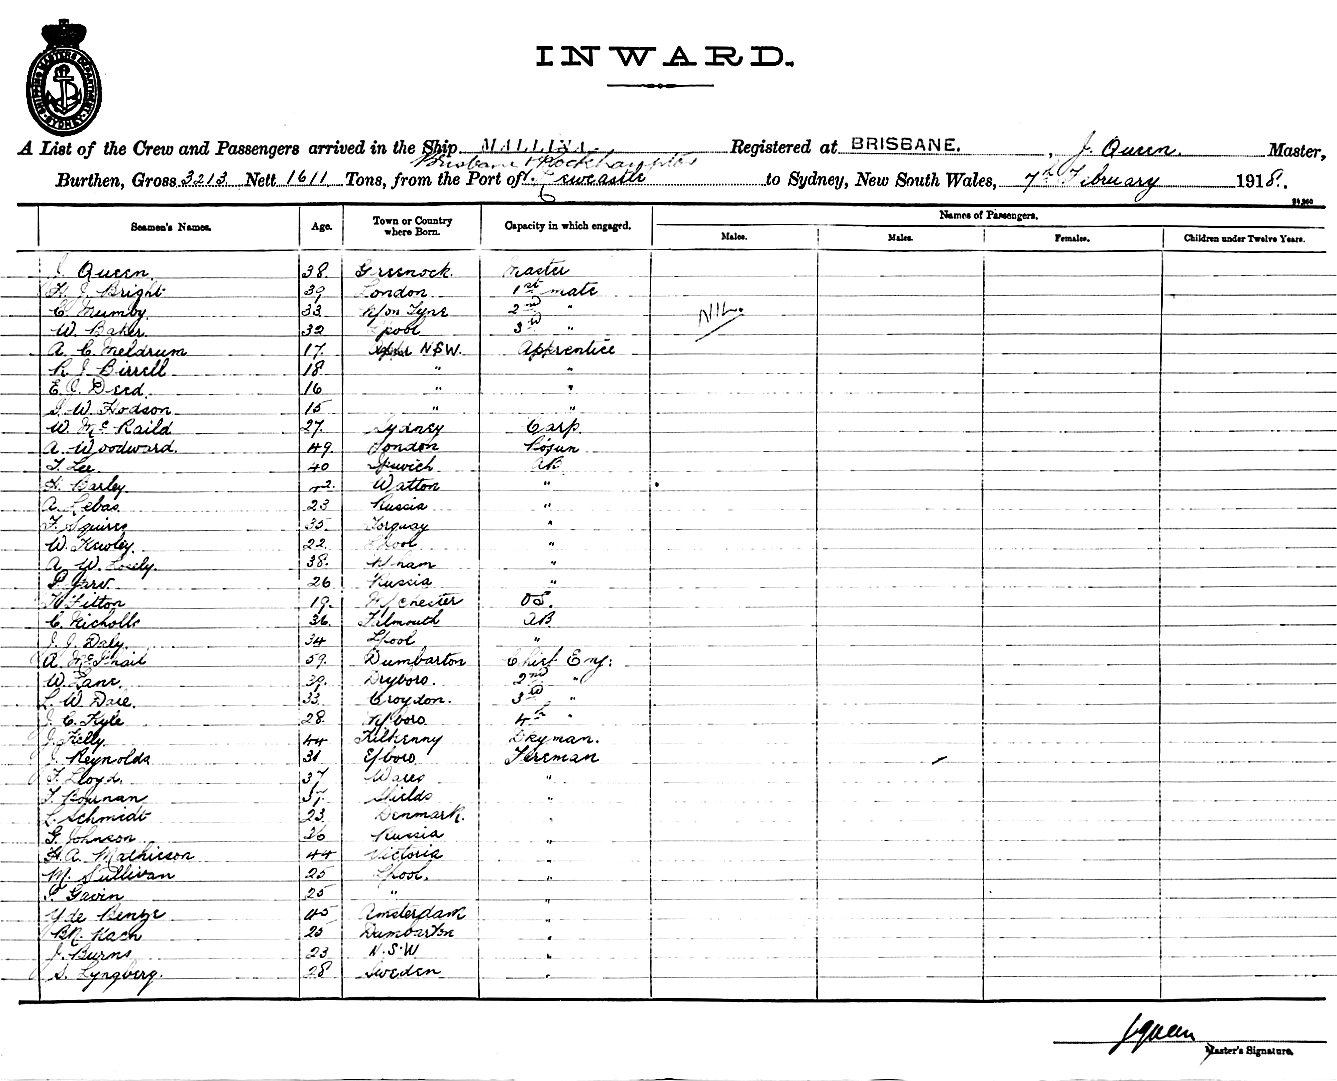 SHIPPING MASTERS DEPARTMENT SYDNEY
INWARD.
A List of the Crew and Passengers arrived in the Ship MALLINA. Registered at BRISBANE. , J. Queen. Master,
Brisbane Rockhampton
Burthen, Gross 3213 Nett 1611 Tons, from the Port of Newcastle to Sydney, New South Wales, 7th February 1918.
Seamen's Names. Age. Town or Country where Born. Capacity in which engaged. Names of Passengers.
Males. Males. Females. Children under Twelve Years.
J. Queen. 38. Greenock. Master
H. J. Bright 39 London 1st mate
C. Mumby. 33. N/on Tyne 2nd "
W. Baker 32 Lpool 3rd "
NIL.
A. C. Meldrum 17. NSW. Apprentice
R. J. Birrell 18 " "
E. Deed 16 " "
W. Hodson 15 " "
W. Mc Raild 27. Sydney Carp.
A. Woodward. 49. London Bosun
T. Lee 40 Ipswich AB
H. Barley. Watton "
A. Lebas 23 Russia "
F. Squires 35. Torquay "
W. Kewley. 22. Lpool "
A. W. Losely. 38. "
P. 26 Russia "
H. Fitton 19. M/chester OS.
C. Nicholls 36. Falmouth AB
J. J. Daly. 34 Lpool "
A. McPhail 59. Dumbarton Chief Eng:
W. Lane. 39. 2nd "
L. W. Dare. 33. Croydon. 3rd "
J. C. Kyle 28. 4th "
J. Kelly. 44 Kilkenny Dkyman.
J. Reynolds 31 Fireman
F. Lloyd. 37 Wales "
T. 37. Shields "
L. Schmidt 23. Denmark. "
G. Johnson 26 Russia "
H. A. Mathieson 44 Victoria "
M. Sullivan 25 Lpool. "
P. Gavin 25 " "
Y de 45 Amsterdam "
25 Dumbarton "
J. Burns 23 N.S.W "
S. Lyngberg. 28 Sweden "
J Queen
Master's Signature.